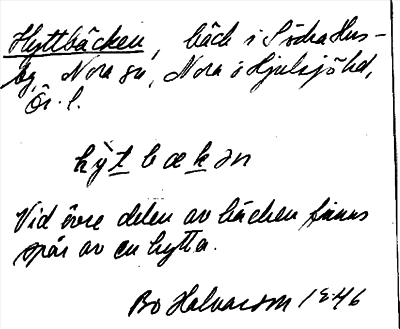 Hyttbäcken, bäck i Södra Hus-
by, Nora sn, Nora o Hjulsjö hd,
Ör. l.
hỳt bækən
Vid övre delen av bäcken finns
spår av en hytta.
Bo Halvarson 1946